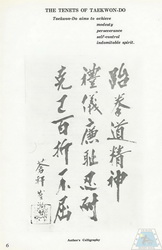 THE TENETS OF TAEKWON-DO
Taekwon-Do aims to achieve
modesty
perseverance
self-control
indomitable spirit.
跆拳道精神
禮儀廉恥忍耐
克己百折不屈
Author's Calligraphy
6